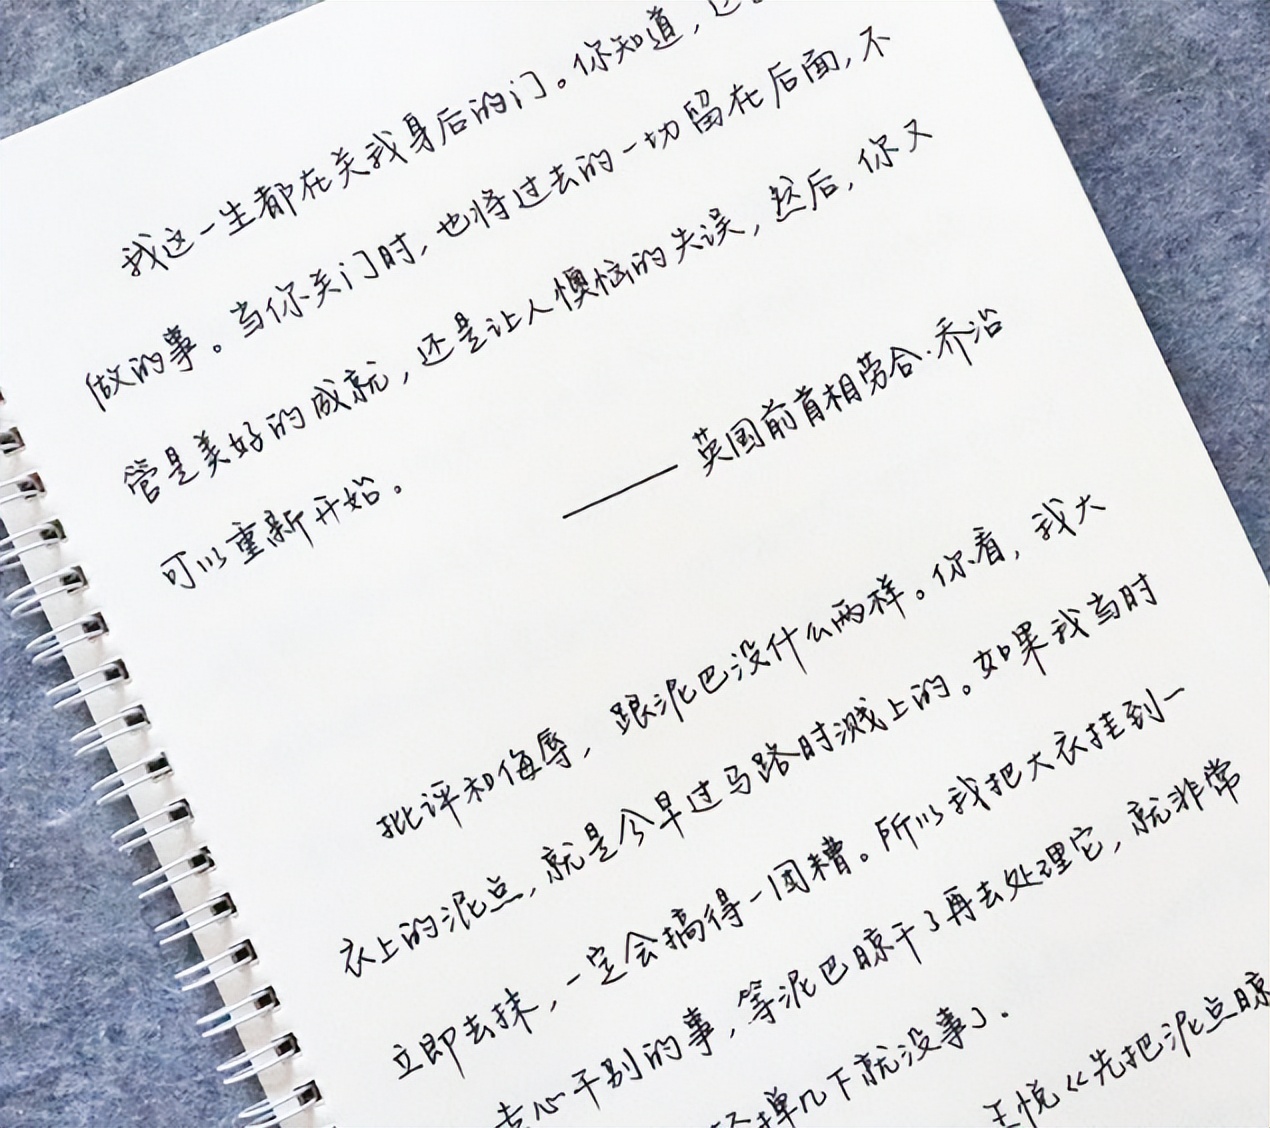 我这一生都在关我身后的门。你知道，这
做的事。当你关门时，也将过去的一切留在后面，不
管是美好的成就，还是让人懊恼的失误，然后，你又
可以重新开始。
—— 英国前首相劳合·乔治
批评和侮辱，跟泥巴没什么两样。你看，我大
衣上的泥点，就是今早过马路时溅上的。如果我当时
立即去抹，一定会搞得一团糟。所以我把大衣挂到一
专心干别的事，等泥巴晾干了再去处理它，就非常
掸几下就没事了。
王悦《先把泥点晾